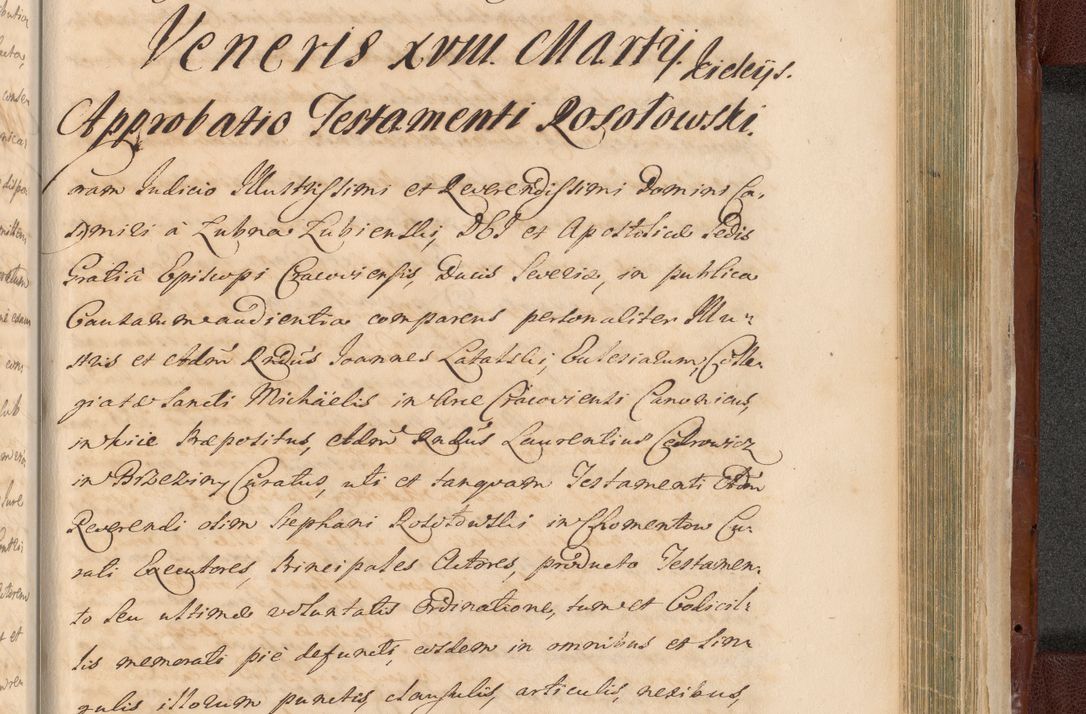 Veneris XVIII. Martij.
Approbatio Testamenti Rosołowski.
oram Iudicio Illustrissimi et Reverendissimi Domini Ca-
simiri à Łubna Łubienski, DEI et Apostolicæ Sedis
Gratiâ Episcopi Cracoviensis, Ducis Severiæ, in publica
Causarum audientia comparens personaliter Illu-
stris et Adm Rndus Ioannes Latalski, Ecclesiarum, Colle-
giatæ Sancti Michaëlis in Arce Cracoviensi Canonicus,
in Præpositus, Adm Rndus Laurentius
in Brzeziny Curatus, uti et tanquam Testamenti Adm
Reverendi olim Stephani Rosołowski in Chomentow Cu-
rati Executores, Principales Actores, producto Testamen-
to seu ultimæ voluntatis Ordinatione, tum et Codicil-
lis memorati piè defuncti, eosdem in omnibus et sin-
gulis illorum punctis, clausulis, articulis, nexibus,